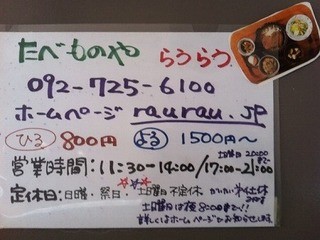 たべものや らうらう
092-725-6100
ホームページ raurau.jp
ひる 800円 よる 1500円〜
土曜日 20:00まで
営業時間:11:30-14:00/17:00-21:00
定休日:日曜・祭日・土曜日不定休
土曜日は夜8:00まで!!
詳しくはホームページでお知らせします